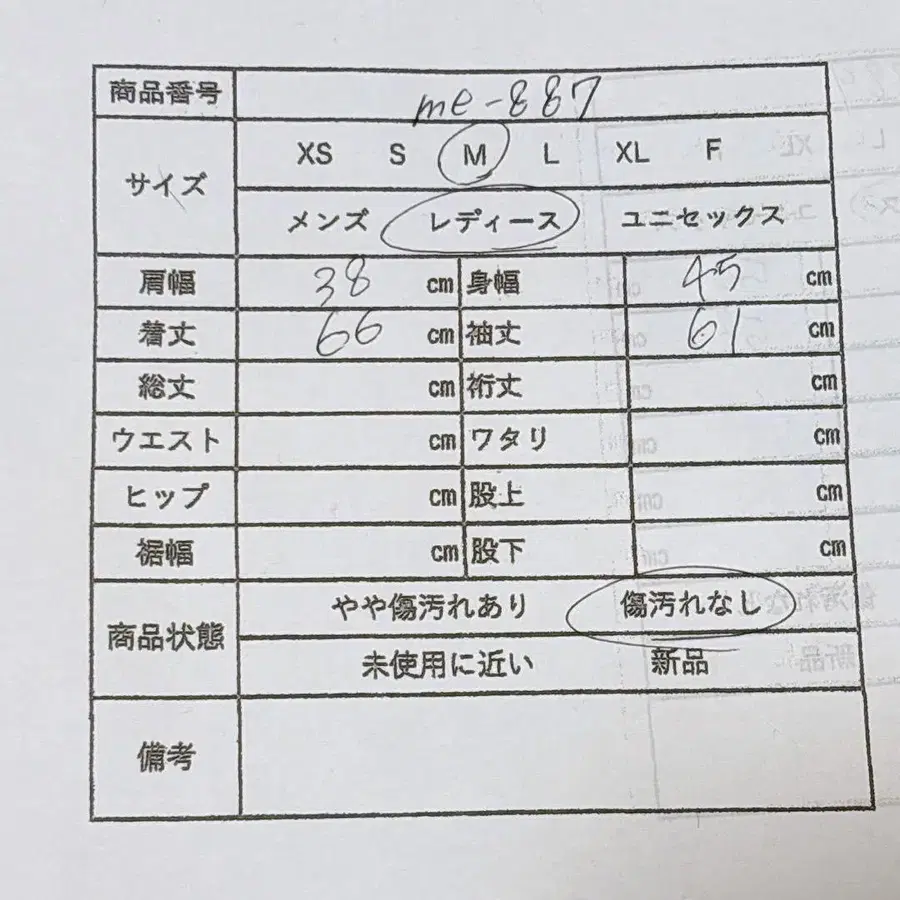 商品番号 me-887
サイズ XS S M L XL F
メンズ レディース ユニセックス
肩幅 38 cm 身幅 45 cm
着丈 66 cm 袖丈 61 cm
総丈 cm 裄丈 cm
ウエスト cm ワタリ cm
ヒップ cm 股上 cm
裾幅 cm 股下 cm
商品状態 やや傷汚れあり 傷汚れなし
未使用に近い 新品
備考